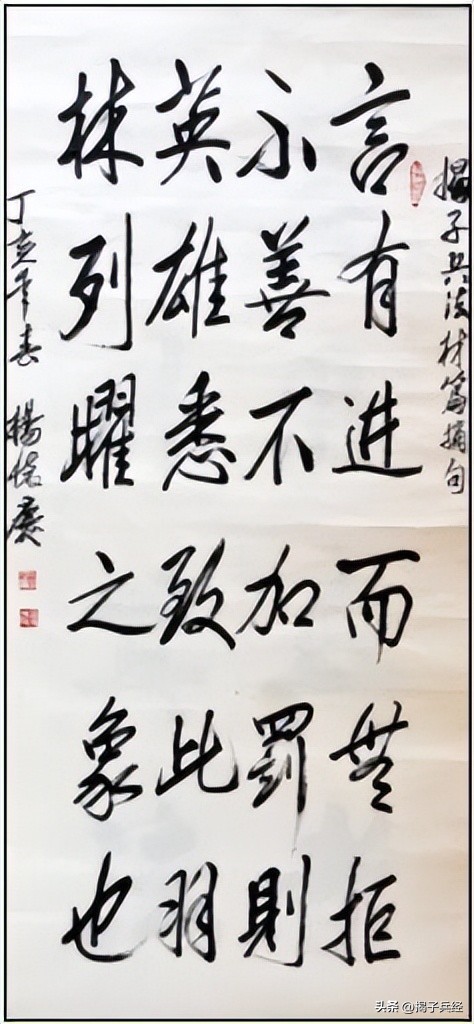 揭子兵法材篇摘句
言有进而無拒
不善不加罰則
英雄悉致此羽
林列曜之象也
丁亥年春 楊
头条 @揭子兵经